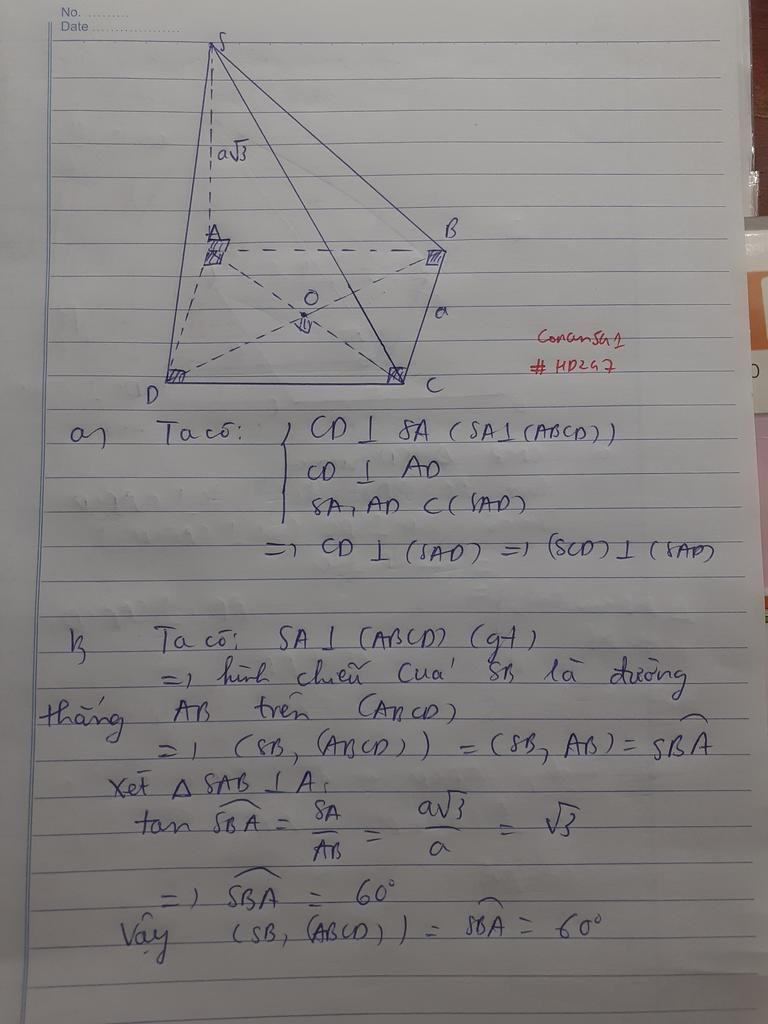 No. .........
Date ...................
S
a√3
A
B
O
a
Conan5a1
# HD247
D
C
a, Ta có: CD ⊥ SA (SA ⊥ (ABCD))
CD ⊥ AD
SA, AD ⊂ (SAD)
=> CD ⊥ (SAD) => (SCD) ⊥ (SAD)
b, Ta có: SA ⊥ (ABCD) (gt)
=> hình chiếu của SB là đường
thẳng AB trên (ABCD)
=> (SB, (ABCD)) = (SB, AB) = SBA
Xét Δ SAB ⊥ A,
tan SBA = SA/AB = a√3/a = √3
=> SBA = 60°
Vậy (SB, (ABCD)) = SBA = 60°